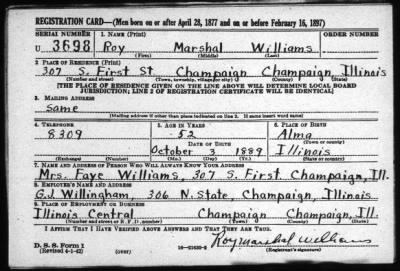 REGISTRATION CARD—(Men born on or after April 28, 1877 and on or before February 16, 1897)
SERIAL NUMBER 1. NAME (Print) ORDER NUMBER
U 3698 Roy Marshal Williams
(First) (Middle) (Last)
2. PLACE OF RESIDENCE (Print)
307 S. First St. Champaign Champaign, Illinois
(Number and street) (Town, township, village, or city) (County) (State)
[THE PLACE OF RESIDENCE GIVEN ON THE LINE ABOVE WILL DETERMINE LOCAL BOARD
JURISDICTION; LINE 2 OF REGISTRATION CERTIFICATE WILL BE IDENTICAL]
3. MAILING ADDRESS
Same
[Mailing address if other than place indicated on line 2. If same insert word same]
4. TELEPHONE 5. AGE IN YEARS 6. PLACE OF BIRTH
8309 52 Alma
DATE OF BIRTH (Town or county)
October 3 1889 Illinois
(Exchange) (Number) (Mo.) (Day) (Yr.) (State or country)
7. NAME AND ADDRESS OF PERSON WHO WILL ALWAYS KNOW YOUR ADDRESS
Mrs. Faye Williams, 307 S. First. Champaign, Ill.
8. EMPLOYER'S NAME AND ADDRESS
G.J. Willingham, 306 N. State, Champaign, Illinois
9. PLACE OF EMPLOYMENT OR BUSINESS
Illinois Central Champaign Champaign, Ill.
(Number and street or R. F. D. number) (Town) (County) (State)
I AFFIRM THAT I HAVE VERIFIED ABOVE ANSWERS AND THAT THEY ARE TRUE.
D. S. S. Form 1 Roy Marshal Williams
(Revised 4-1-42) (over) (Registrant's signature)